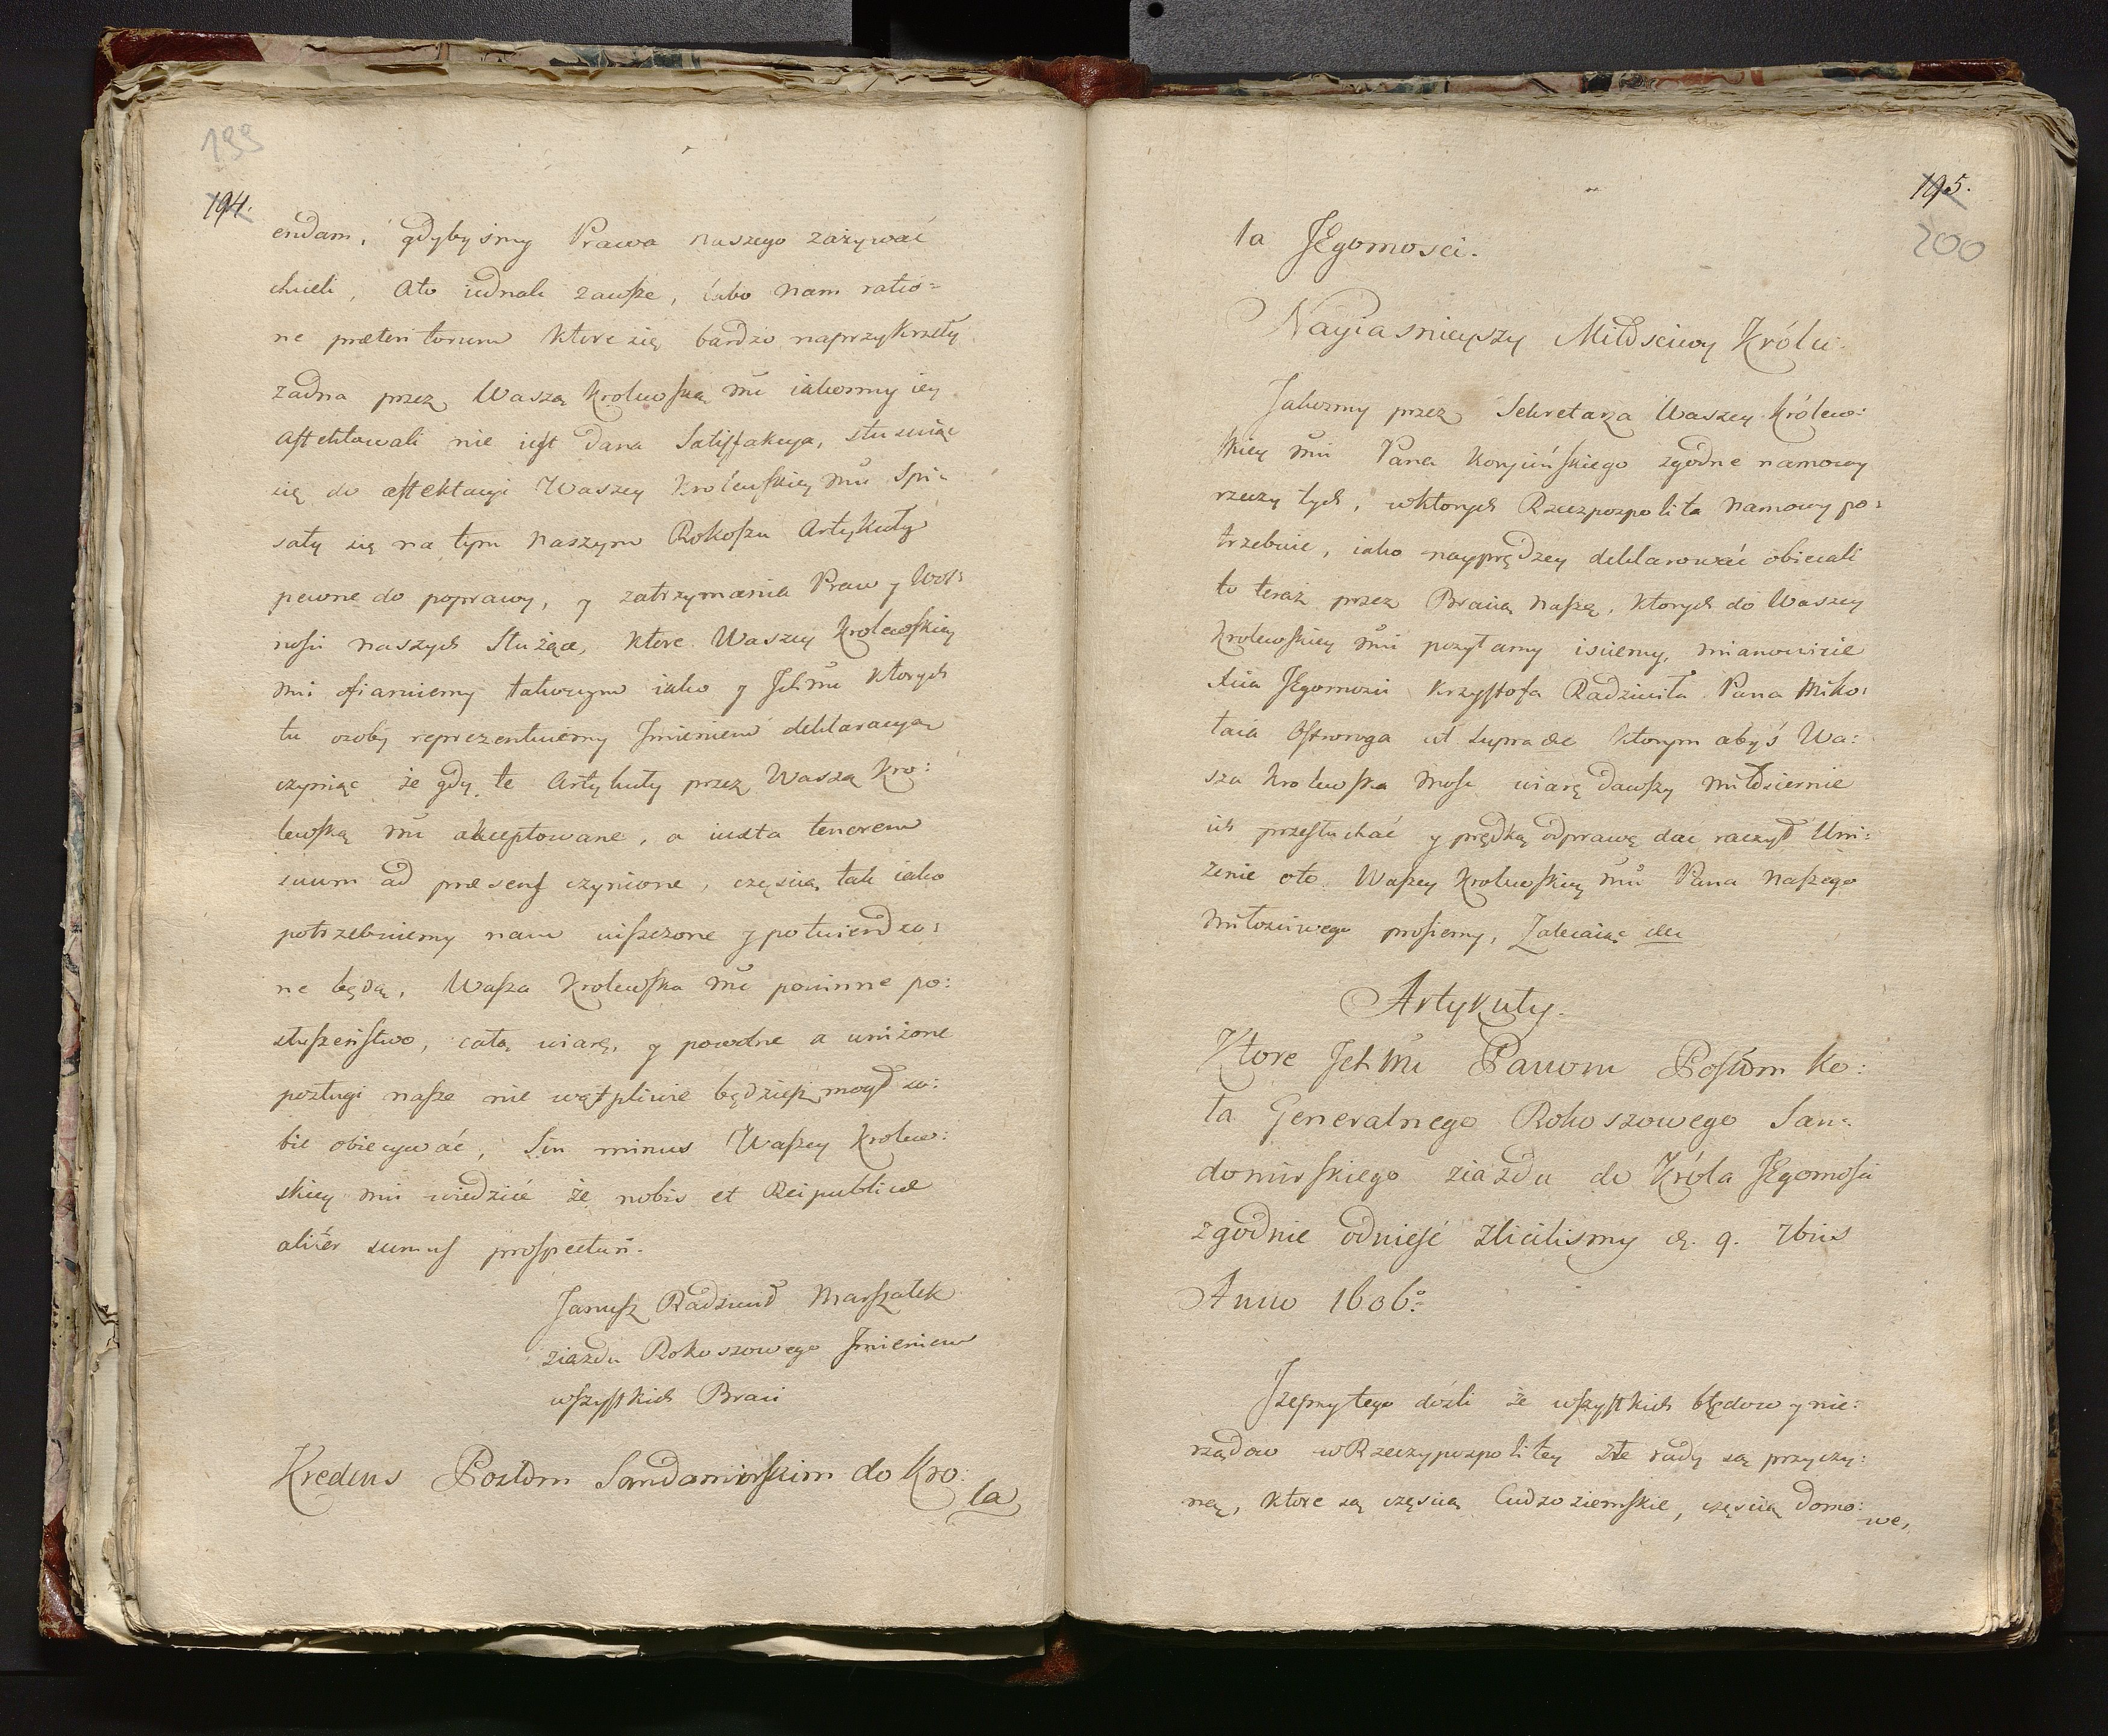 199
194.
endam, gdybyśmy Prawa naszego zażywać
chcieli, Ato iednak zawsze, labo nam ratio=
ne præteritorum ktore się bardzo naprzykrzeły
żadna przez Waszą Krolewską Mć iakosmy iey
affektowali nie iest dana Satisfakcya, stusuiąc
się do affektacyi Waszey Królewskiey Mći Spi=
sały się na tym naszym Rokoszu Artykuły
pewne do poprawy, y zatrzymania Praw y Wol:
nosci naszych Służące, ktore Waszey Krolewskiey
Mći ofiaruiemy takowym iako y Ich Mći ktorych
tu osoby reprezentuiemy Imieniem deklaracyą
czyniąc że gdy te Artykuły przez Waszą Kro:
lewską Mć akceptowane, a iuxta tenorem
suum ad præsens czynione, częscią tak iako
potrzebuiemy nam uiszczone y potwierdzo:
ne będą, Wasza Krolewska Mć powinne po:
słuszeństwo, całą wiarę, y powolne a uniżone
posługi nasze nie wątpliwie będziesz mogł so:
bie obiecywać, Sin minus Waszey Krolew:
skiey Mći wiedzieć że nobis et Reipublicæ
aliter sumus prospecturi.
Janusz Radziwił Marszałek
ziazdu Rokoszowego Imieniem
wszystkich Braci
Kredens Posłom Sandomirskim do Kro:
la
195.
200
la JEgomosci.
Nayiasnieyszy Miłościwy Królu.
Jakosmy przez Sekretarza Waszey Królew:
skiey Mći Pana Koryćińskiego zgodne namowy
rzeczy tych, wktorych Rzeczpospolita namowy po:
trzebuie, iako nayprędzey deklarować obiecali
to teraz przez Bracią naszą, ktorych do Waszey
Krolewskiey Mći posyłamy isciemy, mianowicie
Xcia JEgomosci Krzysztofa Radziwiła Pana Miko:
łaia Ostroroga ut supra &c ktorym abyś Wa:
sza Krolewska Mosc wiarę dawszy miłościernie
ich przesłuchać y prędką odprawę dac raczył Uni:
żenie oto Waszey Krolewskiey Mći Pana naszego
Miłosciwego prosiemy, Zalecaiąc &c
Artykuły.
Ktore Ich Mći Panom Posłom Ko:
ła Generalnego Rokoszowego San=
domirskiego ziazdu do Króla JEgomosci
zgodnie odnieść zlicilismy d. 9. 7bris
Anno 1606.º
Iżesmy tego doźli że wszystkich błędow y nie:
rządow w Rzeczypospolitey złe rady są przyczy:
ną, ktore są częscią Cudzoziemskie, częscią domo:
we,